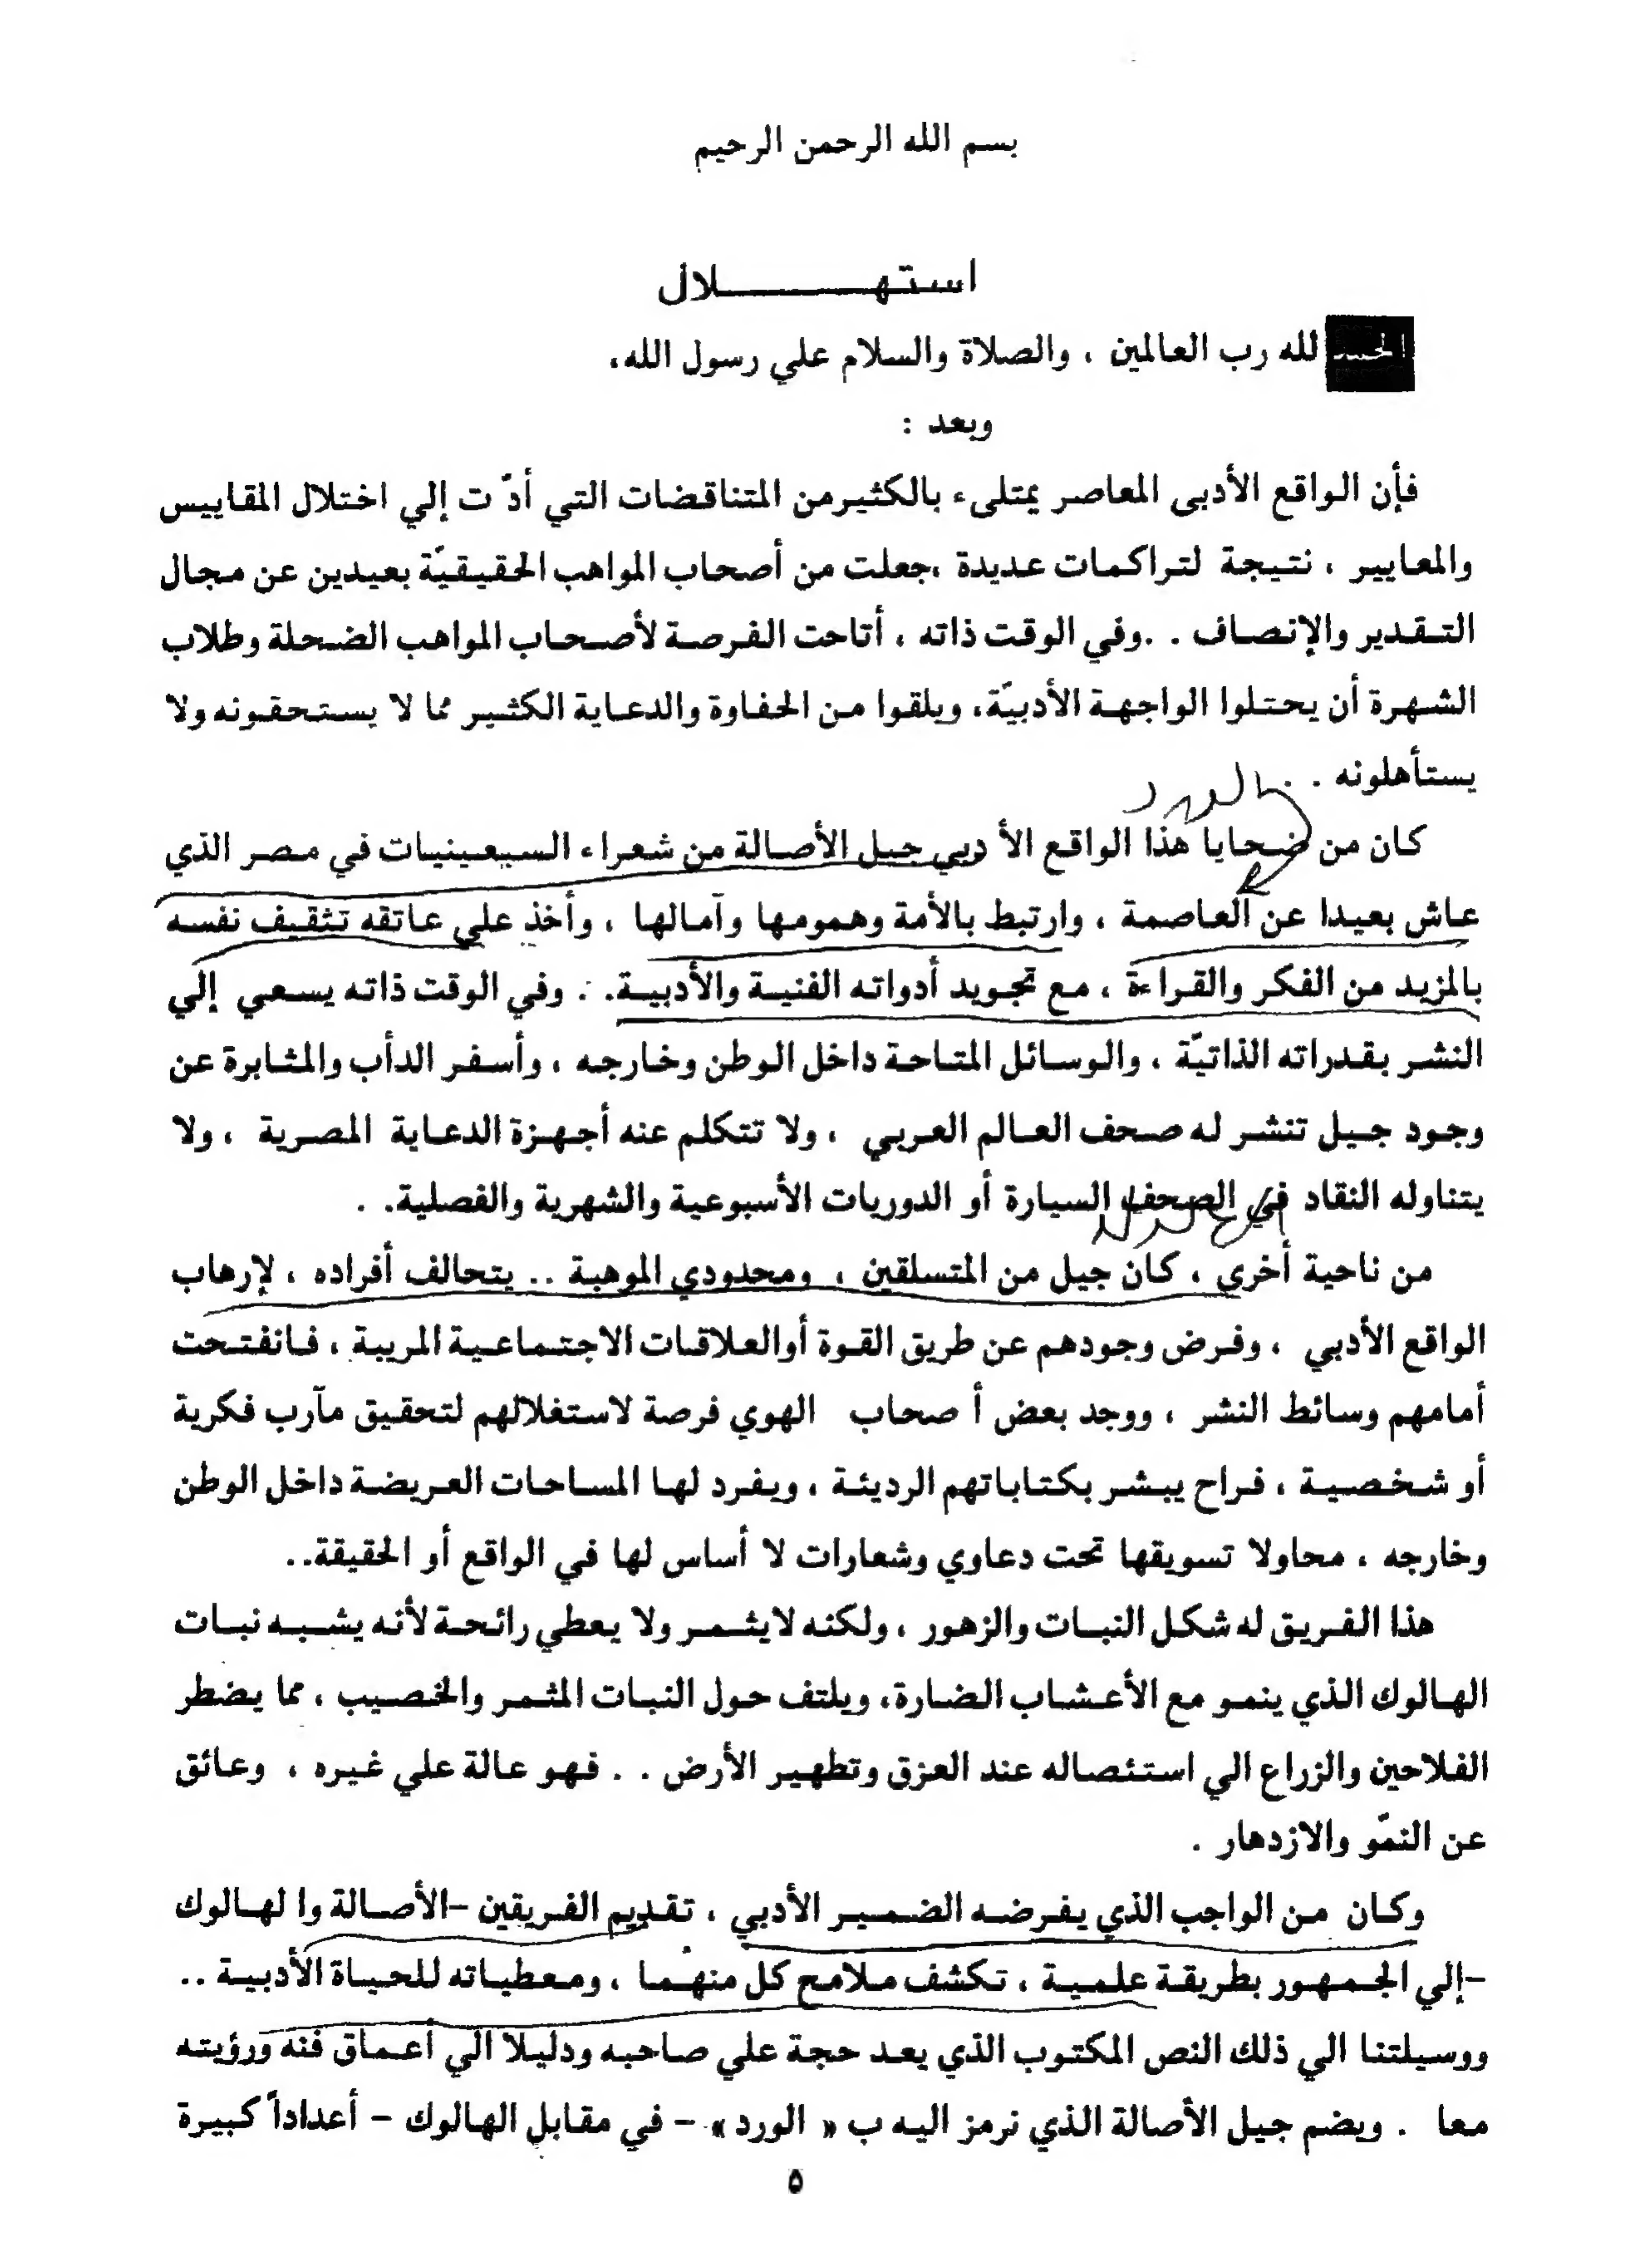 بسم الله الرحمن الرحيم
استهـــــــلال
الحمد لله رب العالمين ، والصلاة والسلام علي رسول الله،
وبعد :
فأن الواقع الأدبى المعاصر يمتلىء بالكثيرمن المتناقضات التي أدّ ت إلي اختلال المقاييس
والمعايير ، نتيجة لتراكمات عديدة ،جعلت من أصحاب المواهب الحقيقيّة بعيدين عن مجال
التقدير والإنصاف . .وفي الوقت ذاته ، أتاحت الفرصة لأصحاب المواهب الضحلة وطلاب
الشهرة أن يحتلوا الواجهة الأدبيّة، ويلقوا من الحفاوة والدعاية الكثير مما لا يستحقونه ولا
يستأهلونه . .
الورد
كان من ضحايا هذا الواقع الأ دبي جيل الأصالة من شعراء السبعينيات في مصر الذي
عاش بعيدا عن العاصمة ، وارتبط بالأمة وهمومها وآمالها ، وأخذ علي عاتقه تثقيف نفسه
بالمزيد من الفكر والقراءة ، مع تجويد أدواته الفنية والأدبية. . وفي الوقت ذاته يسعي إلي
النشر بقدراته الذاتيّة ، والوسائل المتاحة داخل الوطن وخارجه ، وأسفر الدأب والمثابرة عن
وجود جيل تنشر له صحف العالم العربي ، ولا تتكلم عنه أجهزة الدعاية المصرية ، ولا
يتناوله النقاد في الصحف السيارة أو الدوريات الأسبوعية والشهرية والفصلية. .
من ناحية أخري ، كان جيل من المتسلقين ، ومحدودي الموهبة .. يتحالف أفراده ، لإرهاب
الواقع الأدبي ، وفرض وجودهم عن طريق القوة أوالعلاقات الاجتماعية المريبة ، فانفتحت
أمامهم وسائط النشر ، ووجد بعض أ صحاب الهوي فرصة لاستغلالهم لتحقيق مآرب فكرية
أو شخصية ، فراح يبشر بكتاباتهم الرديئة ، ويفرد لها المساحات العريضة داخل الوطن
وخارجه ، محاولا تسويقها تحت دعاوي وشعارات لا أساس لها في الواقع أو الحقيقة..
هذا الفريق له شكل النبات والزهور ، ولكنه لايثمر ولا يعطي رائحة لأنه يشبه نبات
الهالوك الذي ينمو مع الأعشاب الضارة، ويلتف حول النبات المثمر والخصيب ، مما يضطر
الفلاحين والزراع الي استئصاله عند العزق وتطهير الأرض . . فهو عالة علي غيره ، وعائق
عن النمّو والازدهار .
وكان من الواجب الذي يفرضه الضمير الأدبي ، تقديم الفريقين -الأصالة وا لهالوك
-إلي الجمهور بطريقة علمية ، تكشف ملامح كل منهما ، ومعطياته للحياة الأدبية ..
ووسيلتنا الي ذلك النص المكتوب الذي يعد حجة علي صاحبه ودليلا الي أعماق فنه ورؤيته
معا . ويضم جيل الأصالة الذي نرمز اليه ب « الورد »- في مقابل الهالوك - أعداداً كبيرة
٥